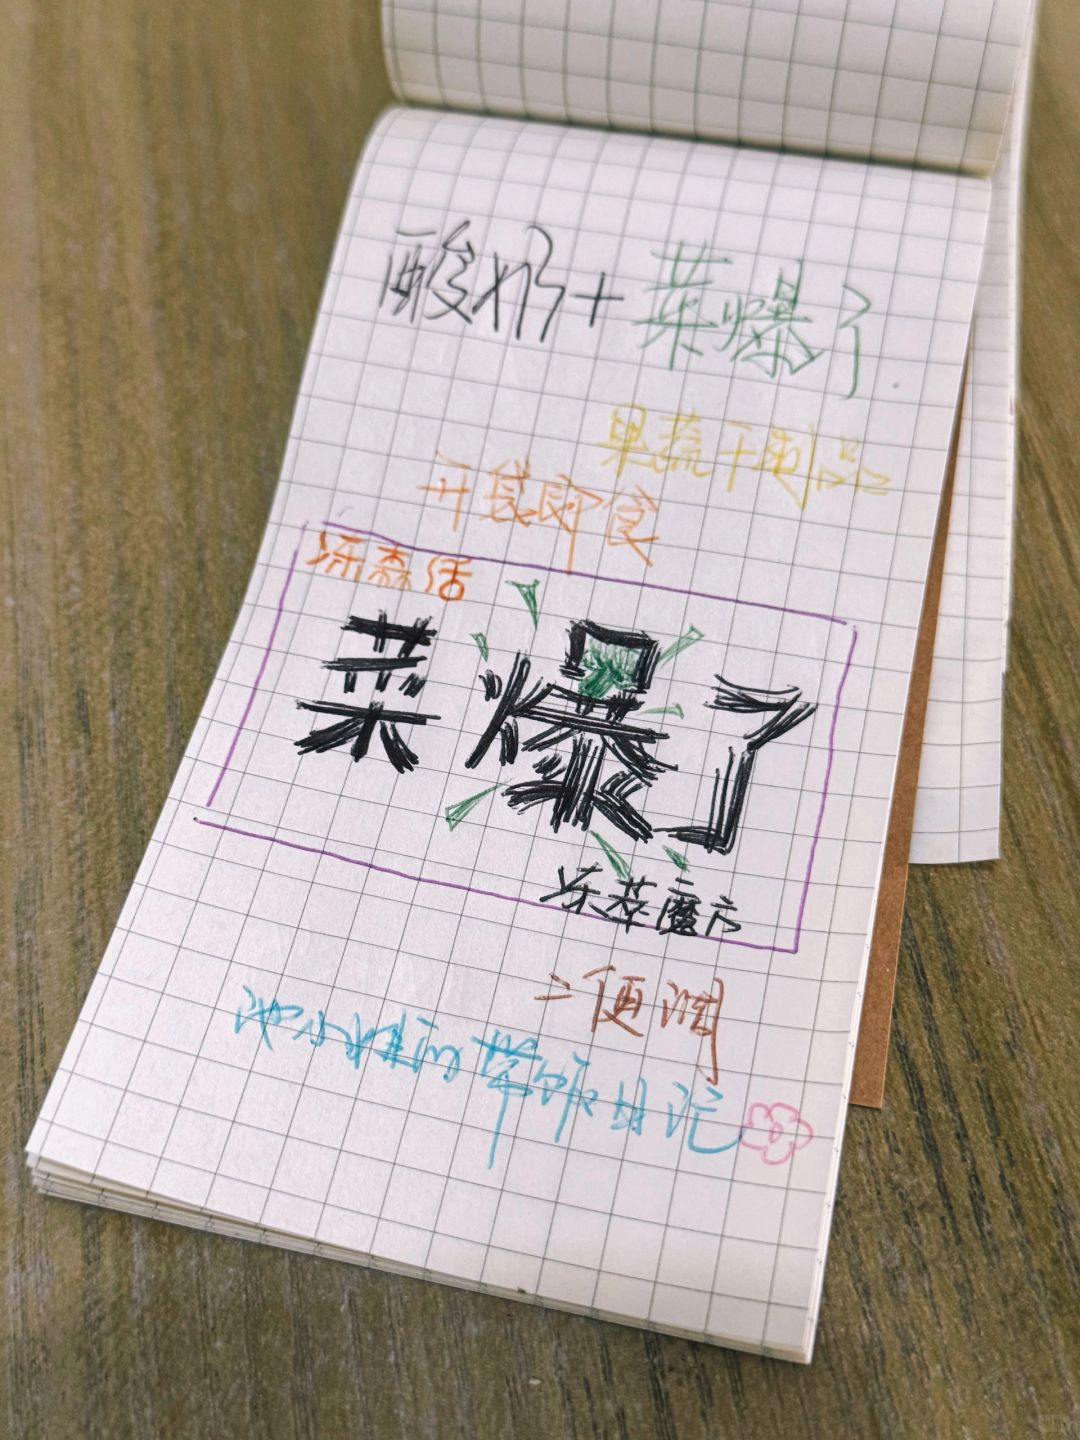 酸奶+菜爆了
果蔬干制品
开袋即食
冻森活
菜爆了
冻萃魔方
二便调
池小娃的带饭日记